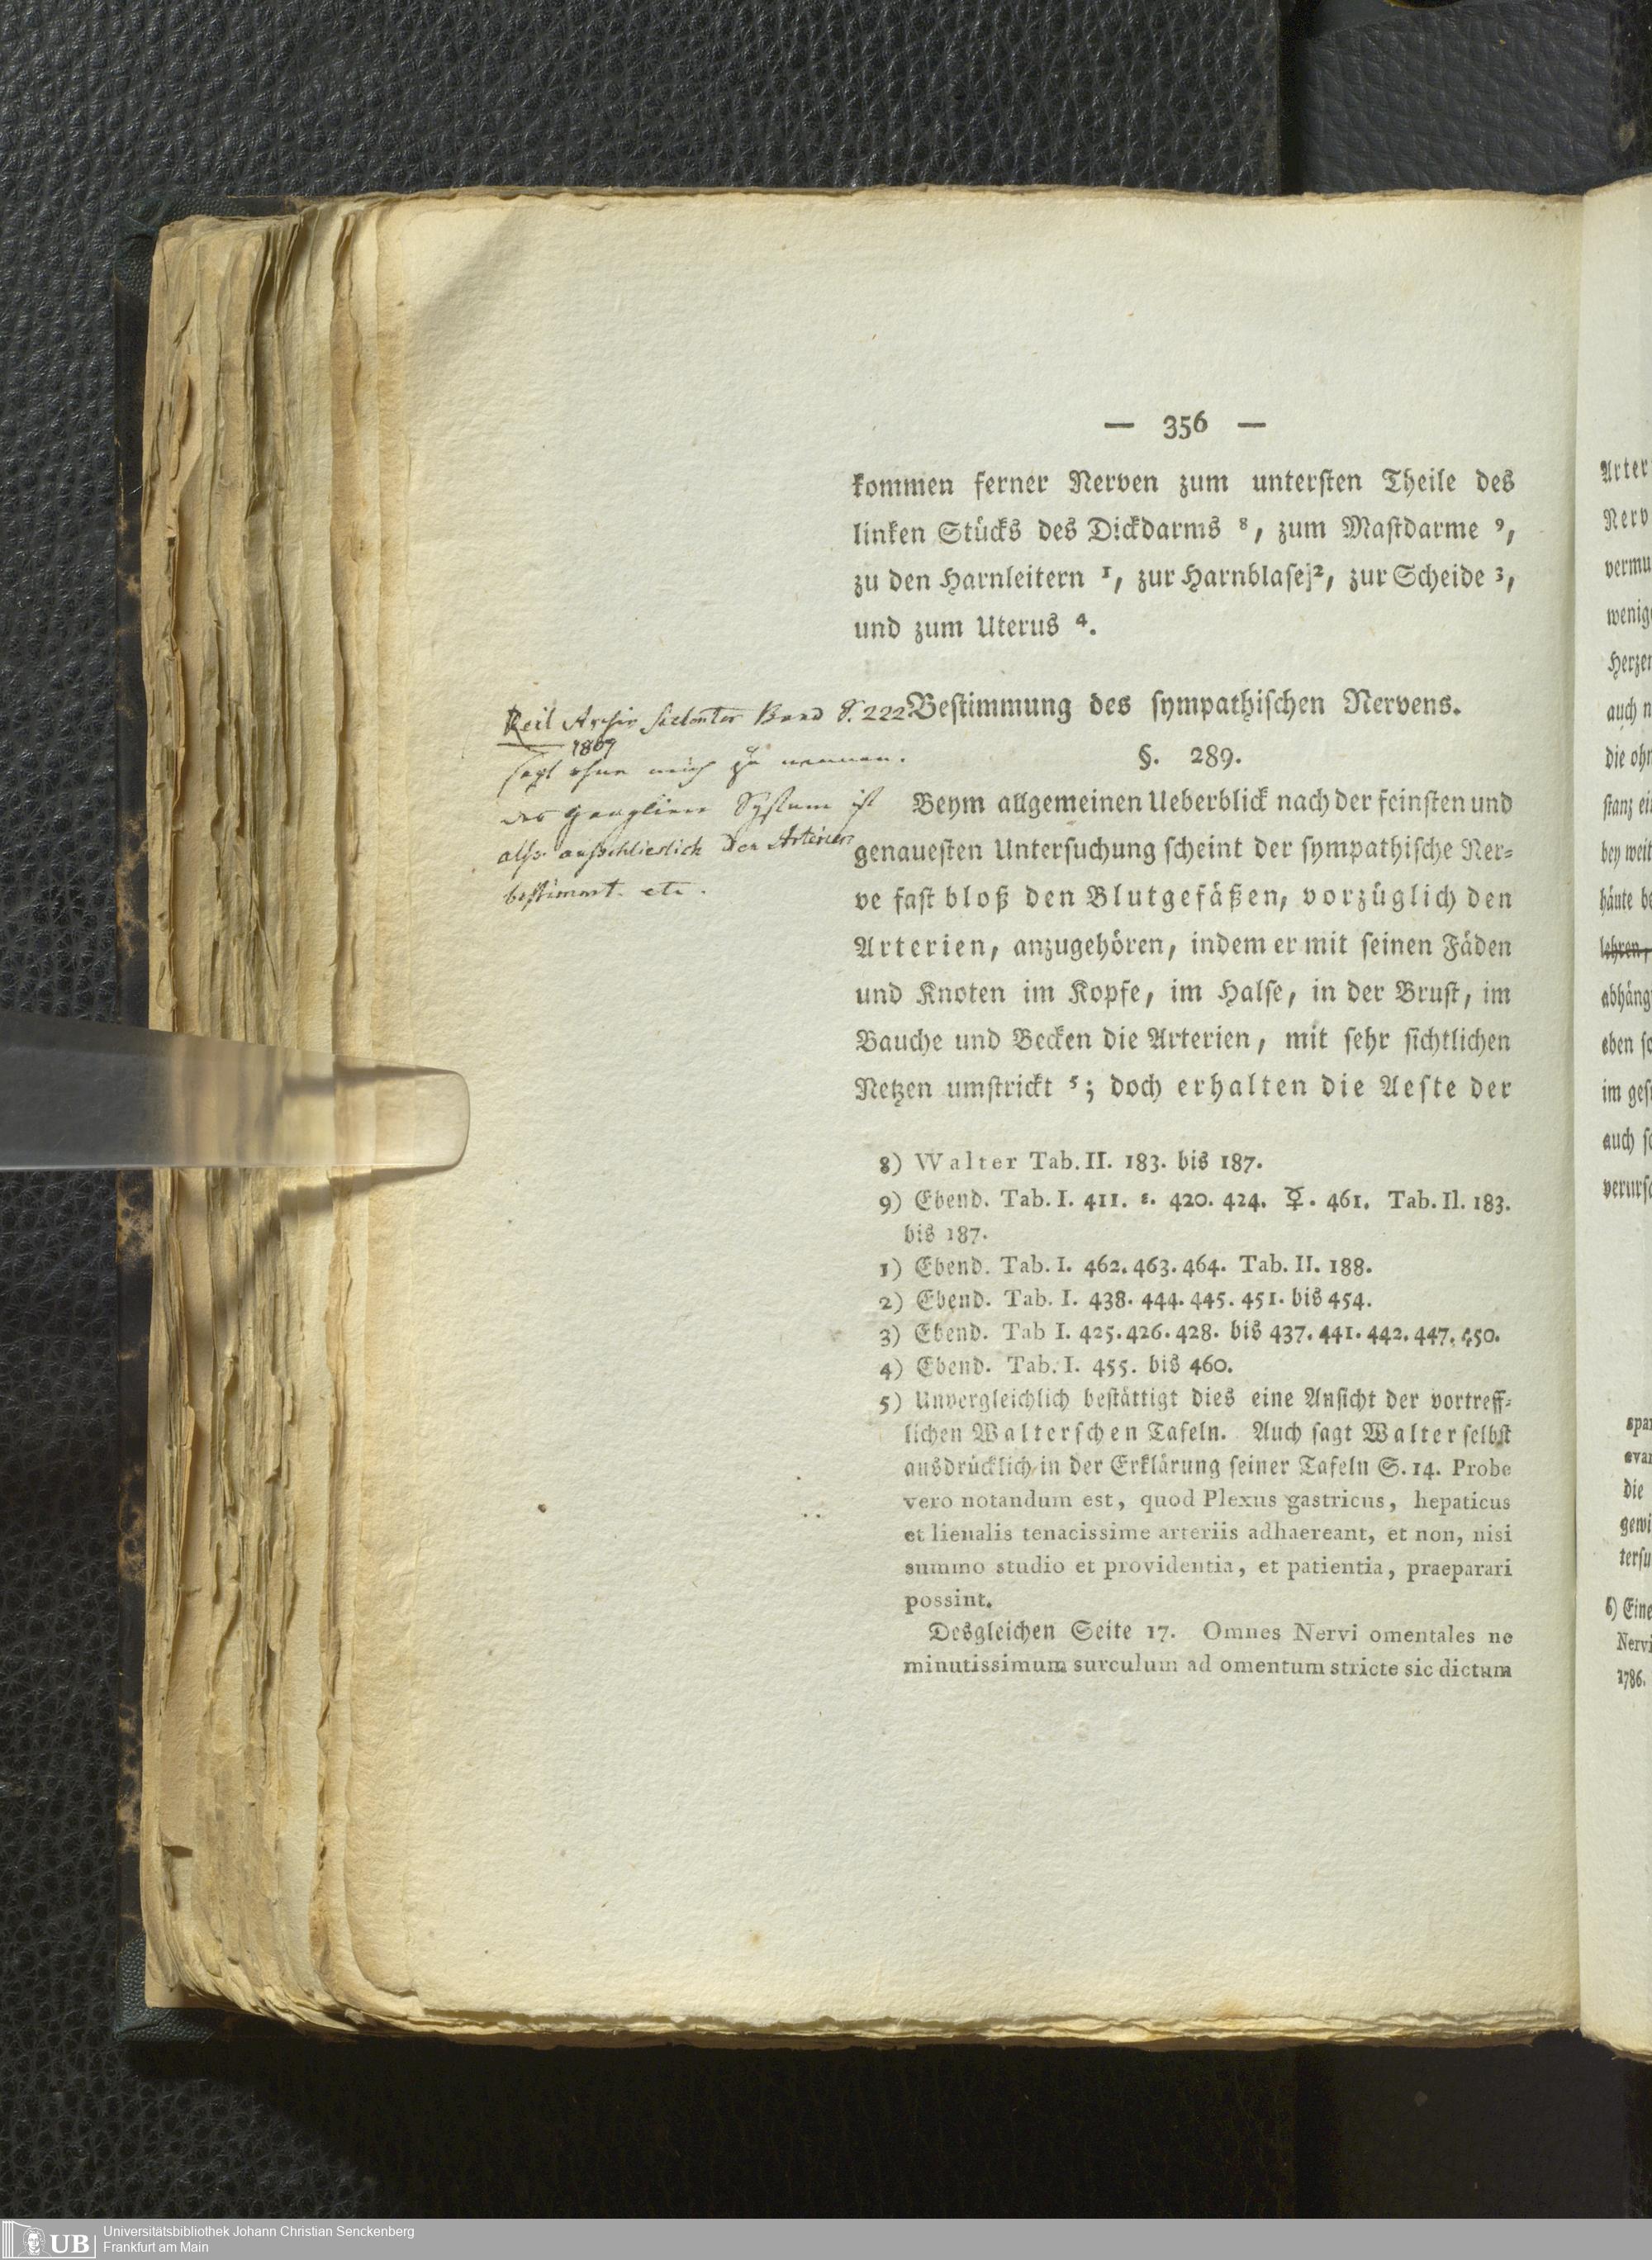 — 356 —
kommen ferner Nerven zum unterſten Theile des
linken Stücks des Dickdarms ⁸, zum Maſtdarme ⁹,
zu den Harnleitern ¹, zur Harnblaſe ², zur Scheide ³,
und zum Uterus ⁴.
Reil Archiv Siebenter Band S. 222.
1807
ſagt ohne mich zu nennen.
das Ganglien Syſtem iſt
alſo ausſchlieslich den Arterien
beſtimmt. etc.
Beſtimmung des ſympathiſchen Nervens.
§. 289.
Beym allgemeinen Ueberblick nach der feinſten und
genaueſten Unterſuchung ſcheint der ſympathiſche Ner⸗
ve faſt bloß den Blutgefäßen, vorzüglich den
Arterien, anzugehören, indem er mit ſeinen Fäden
und Knoten im Kopfe, im Halſe, in der Bruſt, im
Bauche und Becken die Arterien, mit ſehr ſichtlichen
Netzen umſtrickt ⁵; doch erhalten die Aeſte der
8) Walter Tab. II. 183. bis 187.
9) Ebend. Tab. I. 411. ε. 420. 424. ☿. 461. Tab. II. 183.
bis 187.
1) Ebend. Tab. I. 462. 463. 464. Tab. II. 188.
2) Ebend. Tab. I. 438. 444. 445. 451. bis 454.
3) Ebend. Tab I. 425. 426. 428. bis 437. 441. 442. 447. 450.
4) Ebend. Tab. I. 455. bis 460.
5) Unvergleichlich beſtättigt dies eine Anſicht der vortreff⸗
lichen Walterſchen Tafeln. Auch ſagt Walter ſelbſt
ausdrücklich in der Erklärung ſeiner Tafeln S. 14. Probe
vero notandum est, quod Plexus gastricus, hepaticus
et lienalis tenacissime arteriis adhaereant, et non, nisi
summo studio et providentia, et patientia, praeparari
possint.
Desgleichen Seite 17. Omnes Nervi omentales ne
minutissimum surculum ad omentum stricte sic dictum
Arter
Nerv
vermu
wenig
Herzen
auch n
die ohn
ſtanz ei
bey weit
häute be
lehren,
abhäng
eben ſo
im geſ
auch ſ
verurſ
spar
evan
die
gewi
terſu
6) Eine
Nervi
1786.
UB
Universitätsbibliothek Johann Christian Senckenberg
Frankfurt am Main